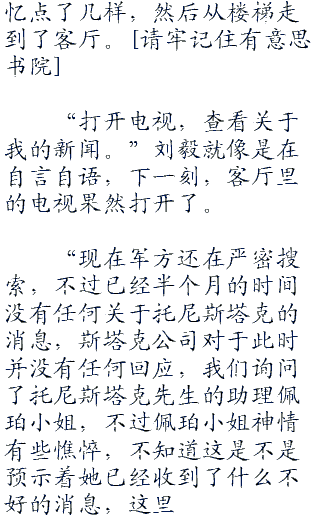 忆点了几样，然后从楼梯走
到了客厅。[请牢记住有意思
书院]
“打开电视，查看关于
我的新闻。” 刘毅就像是在
自言自语，下一刻，客厅里
的电视果然打开了。
“现在军方还在严密搜
索，不过已经半个月的时间
没有任何关于托尼斯塔克的
消息，斯塔克公司对于此时
并没有任何回应，我们询问
了托尼斯塔克先生的助理佩
珀小姐，不过佩珀小姐神情
有些憔悴，不知道这是不是
预示着她已经收到了什么不
好的消息，这里